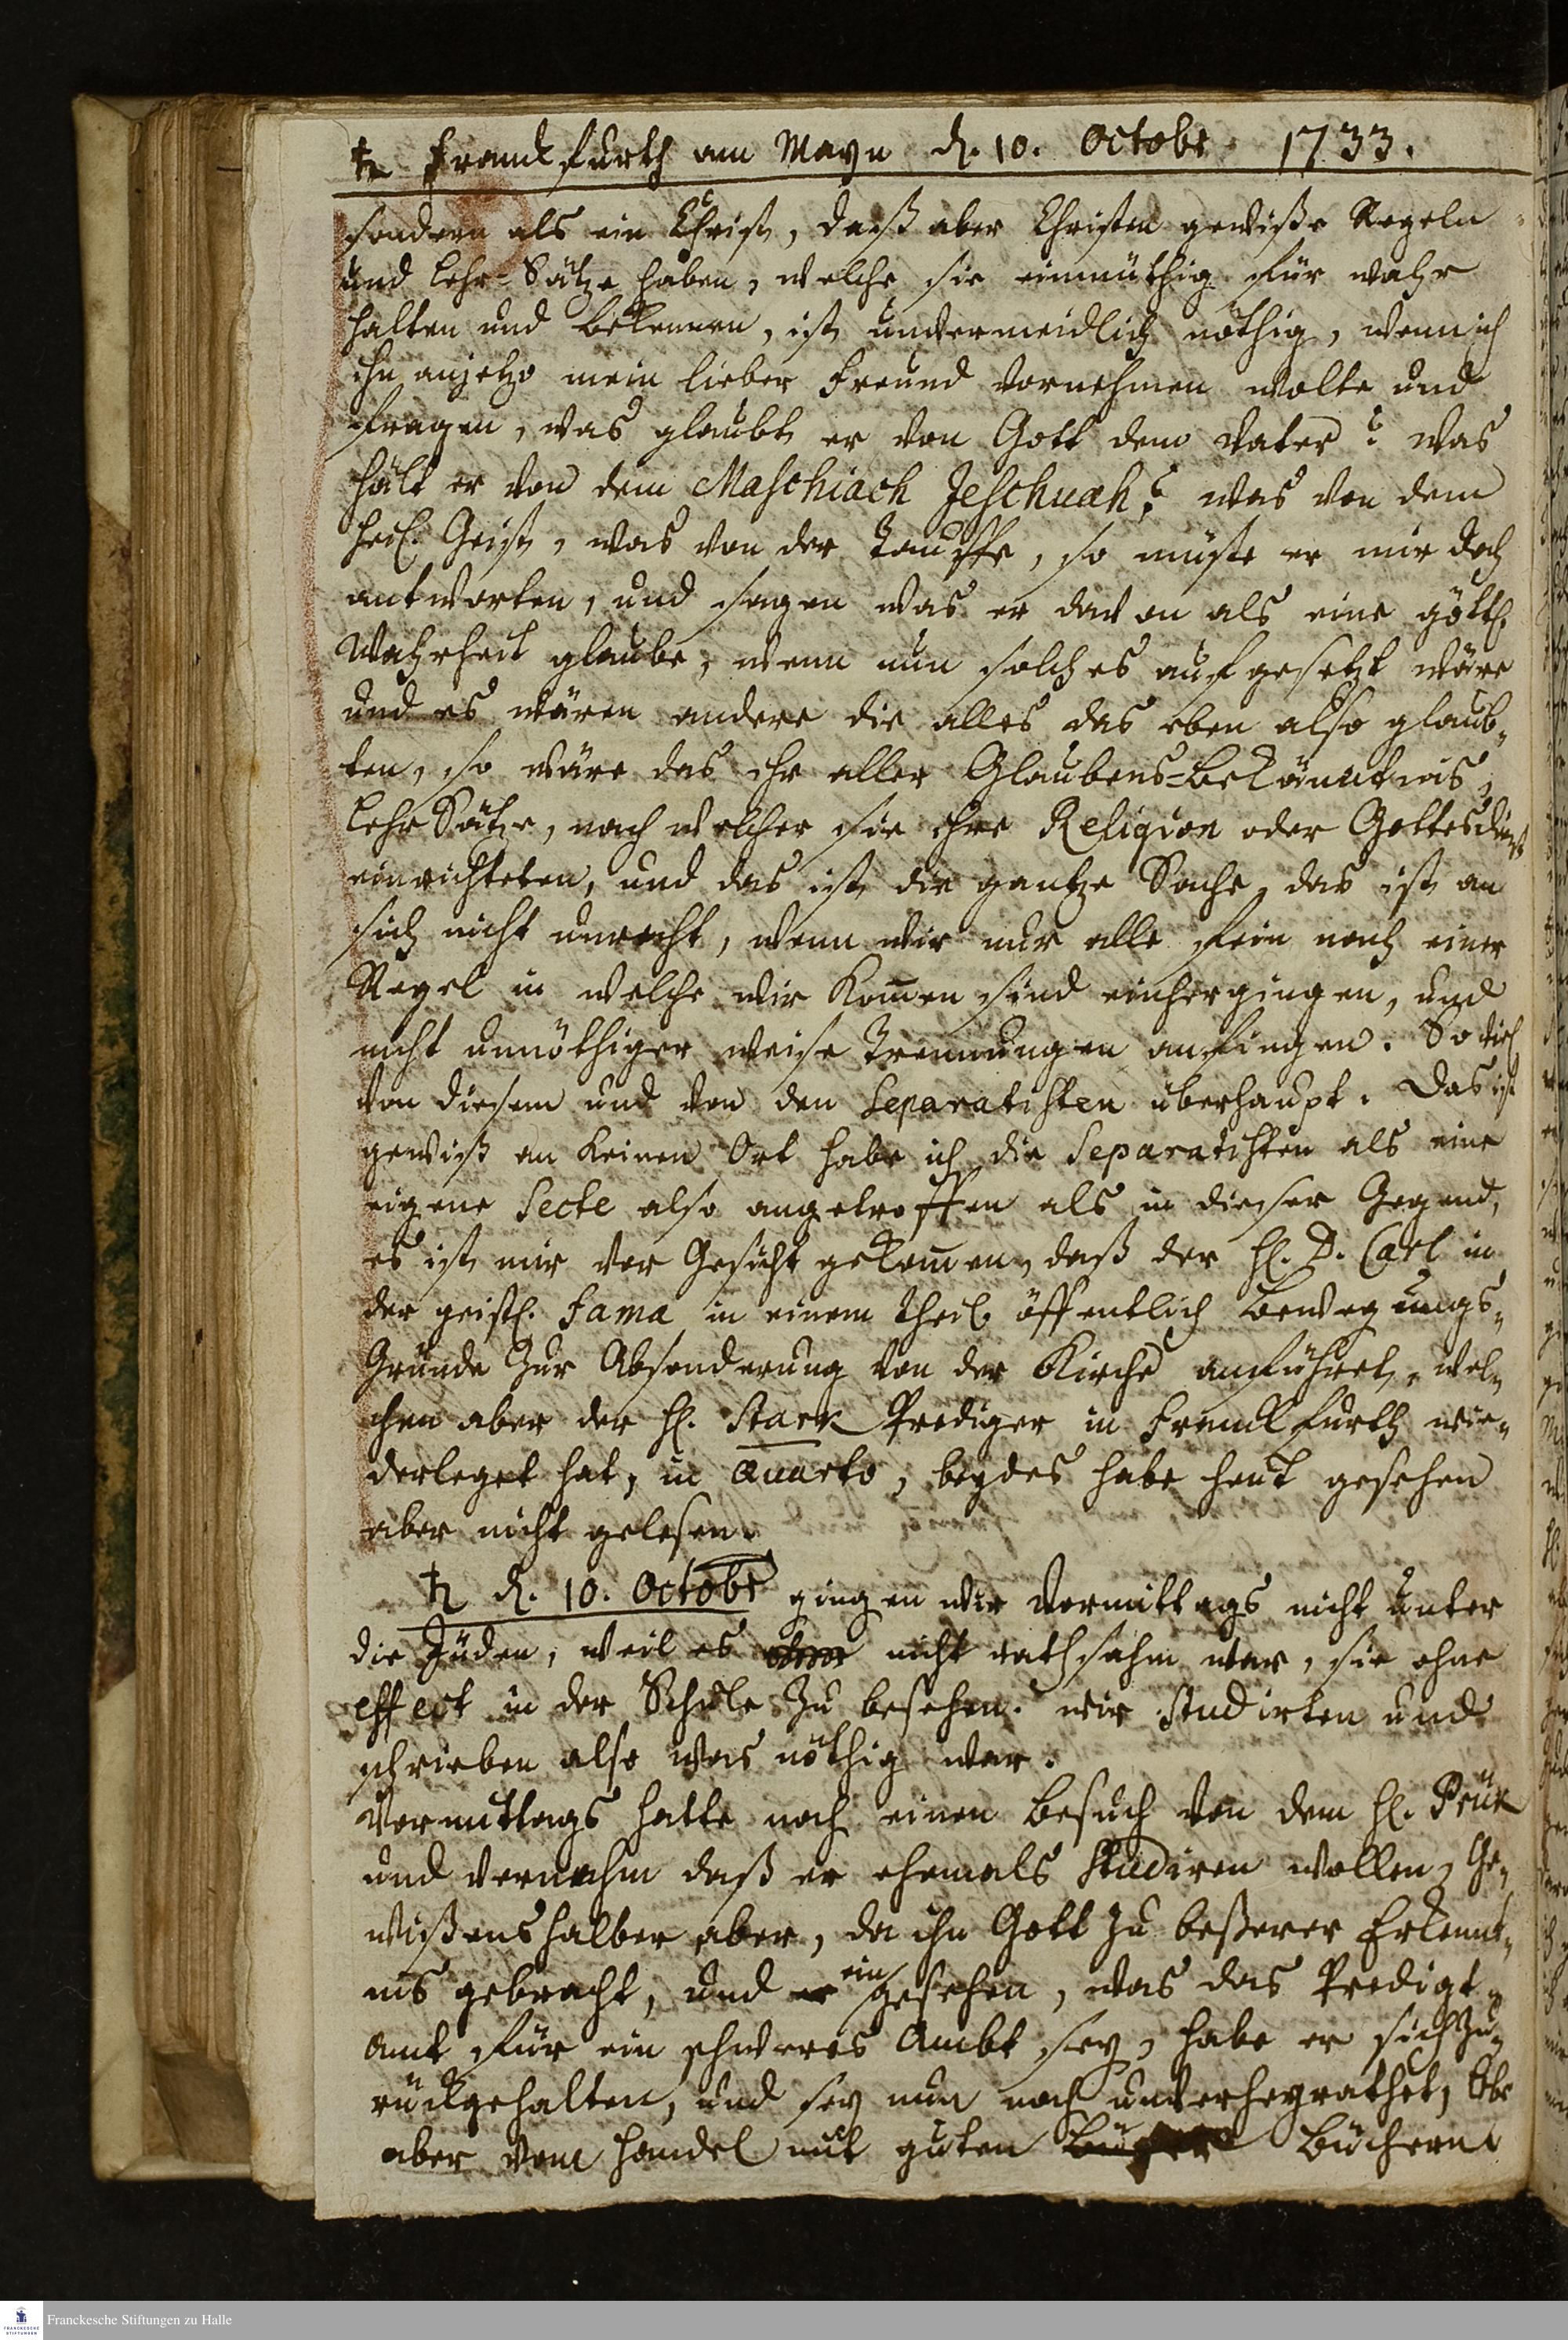 ♄ Franckfurth am Mayn d. 10. Octobr 1733.
sondern als ein Christ, daß aber Christen gewiße Regeln
und Lehr-Sätze haben, welche sie einmüthig für wahr
halten und bekennen, ist unvermeidlich nöthig, wenn ich
ihn anjetzo mein lieber Freund vornehmen wolte und
fragen, was glaubt er von Gott dem Vater? was
hält er von dem Maschiach Jeschuah? was von dem
Heil. Geist, was von der Tauffe, so müste er mir doch
antworten, und sagen was er davon als eine göttl.
Wahrheit glaube, wenn nun solches aufgesetzt wäre
und es wären andere die alles das eben also glaub-
ten, so wäre das ihr aller Glaubens-Bekänntnis,
Lehr Sätze, nach welcher sie ihre Religion oder Gottesdienst
einrichteten, und das ist die gantze Sache, das ist an
sich nicht unrecht, wenn wir nur alle fein nach einer
Regel in welche wir kom̄en sind einhergingen, und
nicht unnöthiger weise Trennungen anfingen. So viel
von diesem und von den Separatisten überhaupt. Das ist
gewiß an keinen Ort habe ich die Separatisten als eine
eigene Secte also angetroffen als in dieser Gegend,
es ist mir vor Gesicht gekom̄en, daß der H. D. Carl in
der geistl. Fama in einem Theil öffentlich Bewegungs-
Gründe zur Absonderung von der Kirche anführet, wel-
chen aber der H. Stark Prediger in Franckfurth wie-
derleget hat, in Quarto, beydes habe heut gesehen
aber nicht gelesen.
♄ d. 10. Octobr gingen wir Vormittags nicht unter
die Jüden, weil es nicht rathsahm war, sie ohne
effect in der Schule zu besehen. wir studirten und
schrieben also was nöthig war.
Vormittags hatte noch einen Besuch von dem H. Prük
und vernahm daß er ehemals studiren wollen, Ge-
wißenshalber aber, da ihn Gott zu beßerer Erkennt-
nis gebracht, und er eingesehen, was das Predigt-
Amt für ein schweres Ambt sey, habe er sich zu-
rückgehalten, und sey nun noch unverheyrathet, lebe
aber vom Handel mit guten Büchern